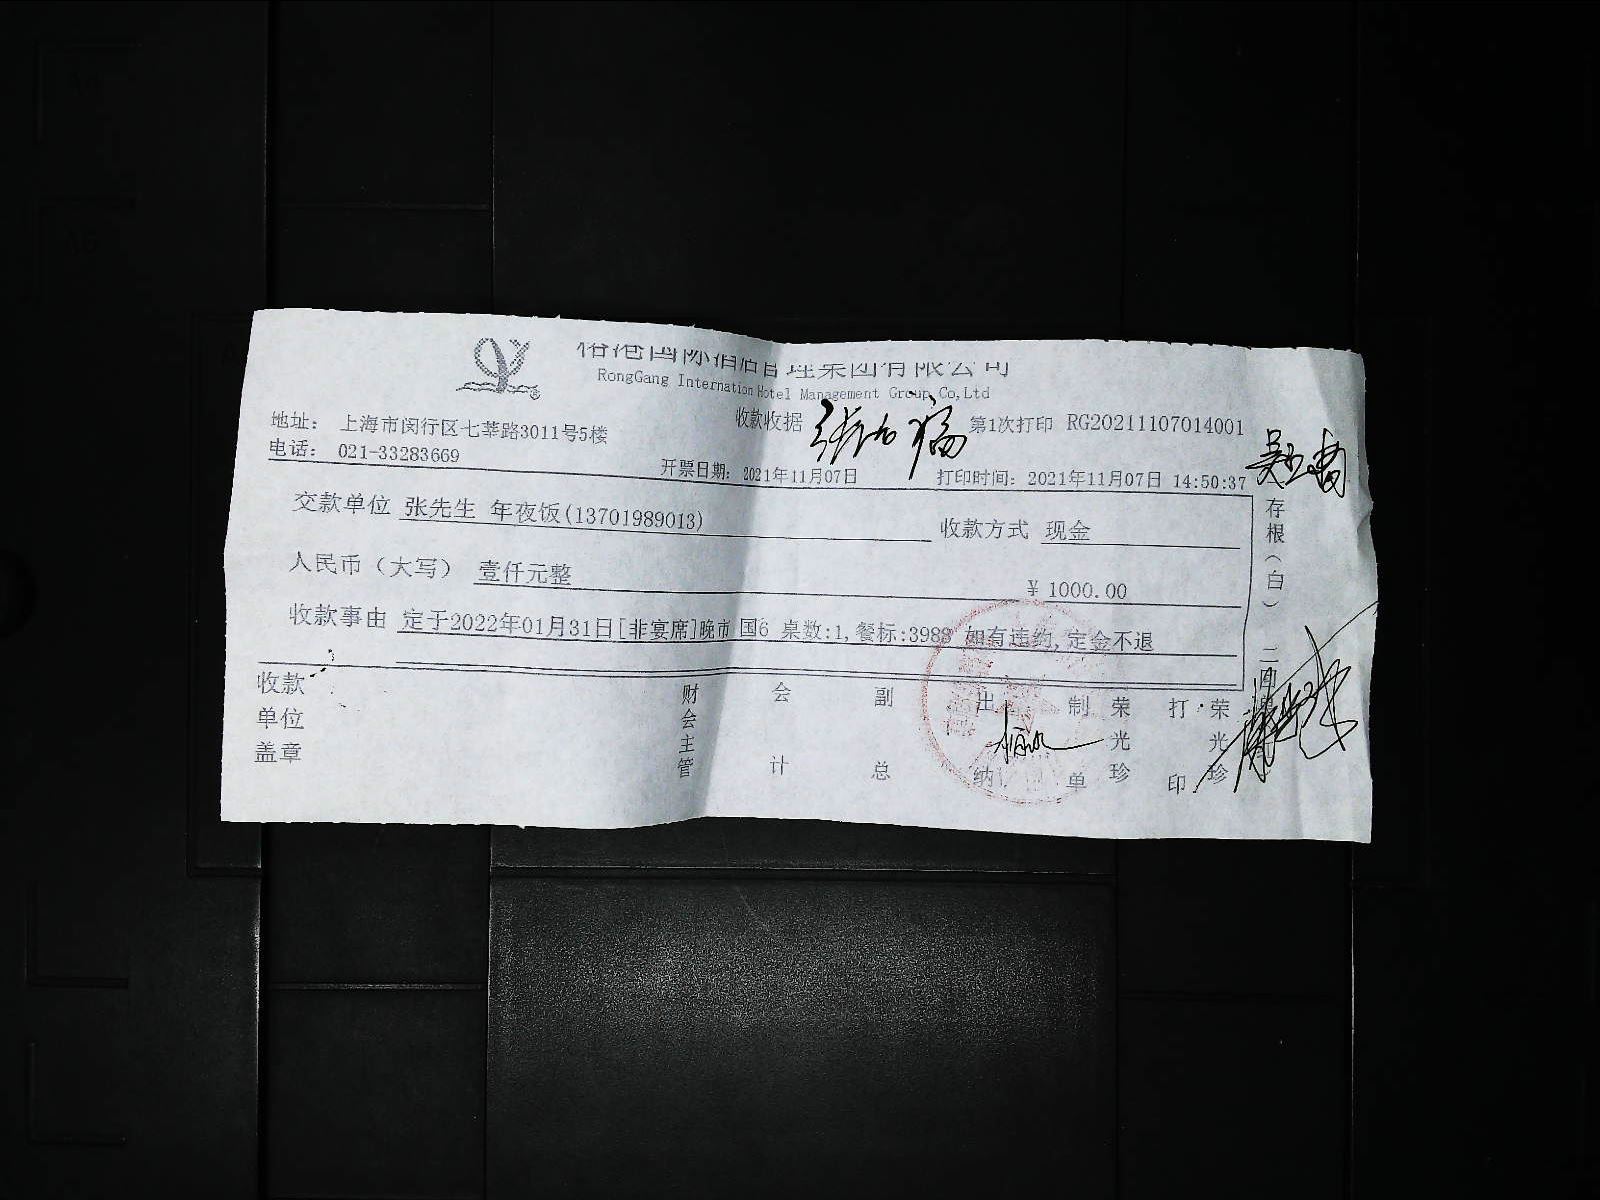 国际酒店管理集团有限公司
RongGang Internation Hotel Management Group Co,Ltd
地址： 上海市闵行区七莘路3011号5楼
收款收据
第1次打印 RG20211107014001
电话： 021-33283669
开票日期：2021年11月07日
打印时间：2021年11月07日 14:50:37
交款单位 张先生 年夜饭(13701989013)
收款方式 现金
人民币（大写） 壹仟元整
¥ 1000.00
收款事由 定于2022年01月31日[非宴席]晚市 国6 桌数:1,餐标:3988 如有违约,定金不退
存根（白）
收款单位盖章
财会主管
会计
副总
出纳
制单
荣光珍
打印
荣光珍